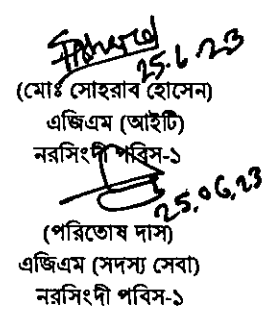 25.6.23
(মোঃ সোহরাব হোসেন)
এজিএম (আইটি)
নরসিংদী পবিস-১
25.06.23
(পরিতোষ দাস)
এজিএম (সদস্য সেবা)
নরসিংদী পবিস-১